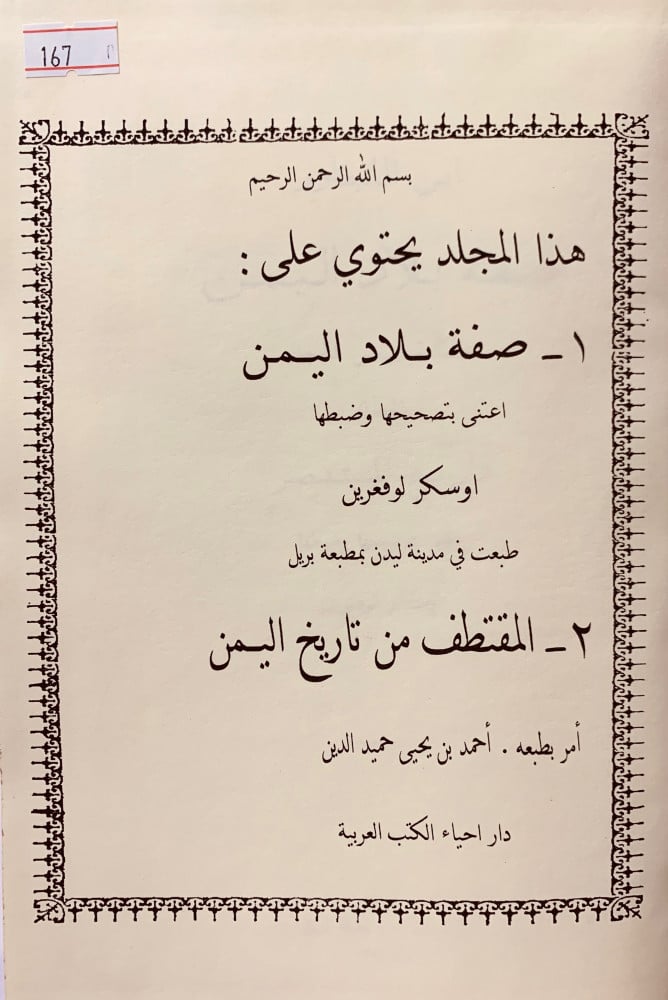 167
بسم الله الرحمن الرحيم
هذا المجلد يحتوي على :
١ ـ صفة بلاد اليمن
اعتنى بتصحيحها وضبطها
اوسكر لوفغرين
طبعت في مدينة ليدن بمطبعة بريل
٢ ـ المقتطف من تاريخ اليمن
أمر بطبعه . أحمد بن يحيى حميد الدين
دار احياء الكتب العربية